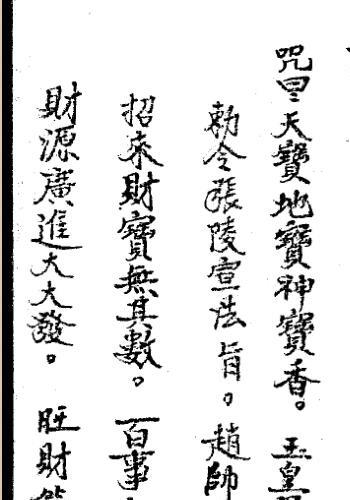 咒曰天寶地寶神寶香。玉皇
勅令張陵宣法旨。趙帥
招來財寶無其數。一百事
財源廣進大大發。旺財